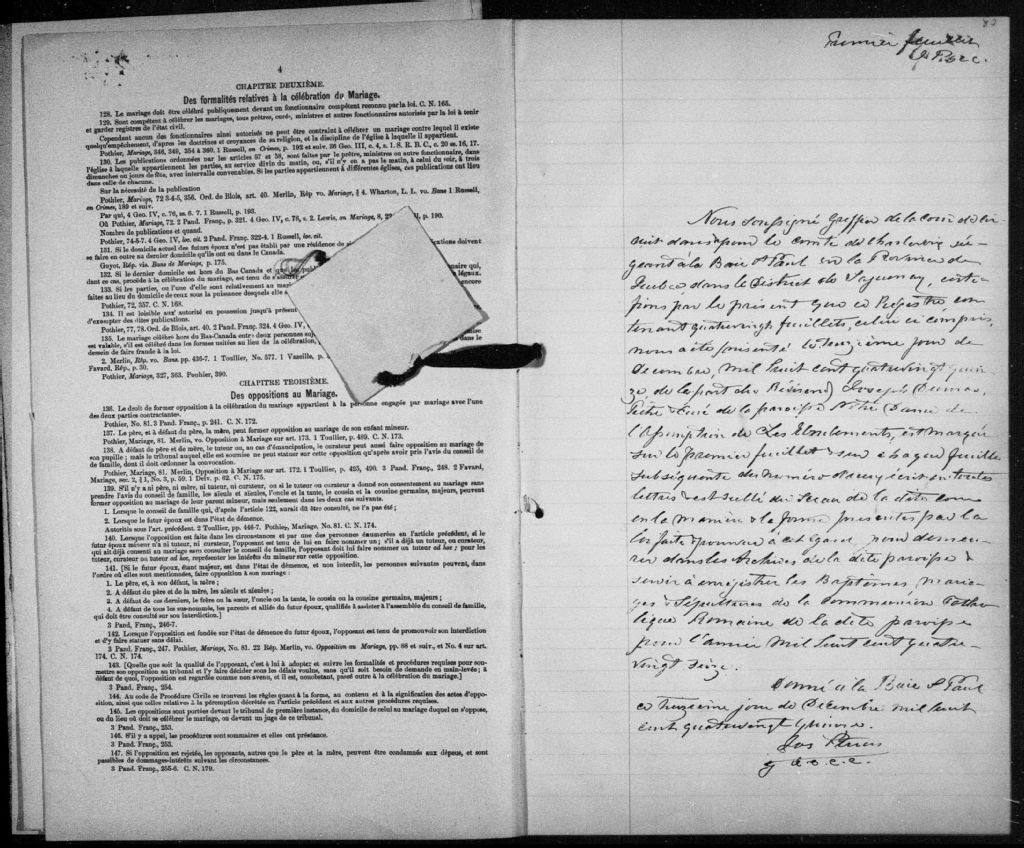 4
CHAPITRE DEUXIÈME.
Des formalités relatives à la célébration du Mariage.
128. Le mariage doit être célébré publiquement devant un fonctionnaire compétent reconnu par la loi. C. N. 165.
129. Sont compétent à célébrer les mariages, tous prêtres, curés, ministres et autres fonctionnaires autorisés par la loi à tenir
et garder registres de l'état civil.
Cependant aucun des fonctionnaires ainsi autorisés ne peut être contraint à célébrer un mariage contre lequel il existe
quelqu'empêchement, d'après les doctrines et croyances de sa religion, et la discipline de l'église à laquelle il appartient.
Pothier, Mariage, 346, 349, 354 à 360. 1 Russell, en Crimes, p. 192 et suiv. 36 Geo. III, c. 4, s. 1. S. R. B. C., c. 20 ss. 16, 17.
130. Les publications ordonnées par les articles 57 et 58, sont faites par le prêtre, ministre ou autre fonctionnaire, dans
l'église à laquelle appartiennent les parties, au service divin du matin, ou, s'il n'y en a pas le matin, à celui du soir, à trois
dimanches ou jours de fête, avec intervalle convenables. Si les parties appartiennent à différentes églises, ces publications ont lieu
dans celle de chacune.
Sur la nécessité de la publication
Pothier, Mariage, 72 3-4-5, 356. Ord. de Blois, art. 40. Merlin, Rép vo. Mariage, § 4. Wharton, L. L. vo. Bans 1 Russell,
en Crimes, 189 et suiv.
Par qui, 4 Geo. IV, c. 76, ss. 6. 7. 1 Russell, p. 193.
Où Pothier, Mariage, 72. 2 Pand. Franç., p. 321. 4 Geo. IV, c. 76, s. 2. Lewis, on Marriage, 8, p. 190.
Nombre de publications et quand.
Pothier, 74-5-7. 4 Geo. IV, loc. cit. 2 Pand. Franç. 322-4. 1 Russell, loc. cit.
131. Si le domicile actuel des futurs époux n'est pas établi par une résidence de doivent
se faire en outre au dernier domicile qu'ils ont eu dans le Canada.
Guyot, Rép. vis. Bans de Mariage, p. 175.
132. Si le dernier domicile est hors du Bas Canada et que les
dant ce cas, procède à la célébration du mariage, est tenu de s'assurer légaux.
133. Si les parties, ou l'une d'elle sont relativement au encore
faites au lieu du domicile de ceux sous la puissance desquels elle
Pothier, 72, 357. C. N. 168.
134. Il est loisible aux autorité en possession jusqu'à présent
d'exempter des dites publications.
Pothier, 77, 78. Ord. de Blois, art. 40. 2 Pand. Franç. 324. 4 Geo. IV,
135. Le mariage célébré hors du Bas-Canada entre deux personnes
est valable, s'il est célébré dans les formes usitées au lieu de la célébration, dans le
dessein de faire fraude à la loi.
2. Merlin, Rép. vo. Bans. pp. 435-7. 1 Toullier, No. 577. 1 Vazeille, p.
Favard, Rép., p. 30.
Pothier, Mariage, 327, 363. Pouhier, 390.
CHAPITRE TROISIÈME.
Des oppositions au Mariage.
136. Le droit de former opposition à la célébration du mariage appartient à la personne engagée par mariage avec l'une
des deux parties contractantes.
Pothier, No. 81. 3 Pand. Franç., p. 241. C. N. 172.
137. Le père, et à défaut du père, la mère, peut former opposition au mariage de son enfant mineur.
Pothier, Mariage, 81. Merlin, vo. Opposition à Mariage sur art. 173. 1 Toullier, p. 489. C. N. 173.
138. A défaut de père et de mère, le tuteur ou, au cas d'émancipation, le curateur peut aussi faire opposition au mariage de
son pupille ; mais le tribunal auquel elle est soumise ne peut statuer sur cette opposition qu'après avoir pris l'avis du conseil de
famille, dont il doit ordonner la convocation.
Pothier, Mariage, 81. Merlin, Opposition à Mariage sur art. 172. 1 Toullier, p. 425, 490. 3 Pand. Franç., 248. 2 Favard,
Mariage, sec. 2, § 1, No. 3, p. 59. 1 Delv. p. 62. C. N. 175.
139. S'il n'y a ni père, ni mère, ni tuteur, ni curateur, ou si le tuteur ou curateur a donné son consentement au mariage sans
prendre l'avis du conseil de famille, les aïeuls et aïeules, l'oncle et la tante, le cousin et la cousine germains, majeurs, peuvent
former opposition au mariage de leur parent mineur, mais seulement dans les deux cas suivants.
1. Lorsque le conseil de famille qui, d'après l'article 122, aurait dû être consulté, ne l'a pas été ;
2. Lorsque le futur époux est dans l'état de démence.
Autorités sous l'art. précédent. 2 Toullier, pp. 446-7. Pothier, Mariage, No. 81. C. N. 174.
140. Lorsque l'opposition est faite dans les circonstances et par une des personnes énumérées en l'article précédent, si le
futur époux mineur n'a ni tuteur, ni curateur, l'opposant est tenu de lui en faire nommer un ; s'il a déjà un tuteur, ou curateur,
qui ait déjà consenti au mariage sans consulter le conseil de famille, l'opposant doit lui faire nommer un tuteur ad hoc ; pour les
tuteur, curateur ou tuteur ad hoc, représenter les intérêts du mineur sur cette opposition.
141. [Si le futur époux, étant majeur, est dans l'état de démence, et non interdit, les personnes suivantes peuvent, dans
l'ordre où elles sont mentionnées, faire opposition à son mariage :
1. Le père, et, à son défaut, la mère ;
2. A défaut du père et de la mère, les aïeuls et aïeules ;
3. A défaut de ces derniers, le frère ou la sœur, l'oncle ou la tante, le cousin ou la cousine germains, majeurs ;
4. A défaut de tous les sus-nommés, les parents et alliés du futur époux, qualifiés à assister à l'assemblée du conseil de famille,
qui doit être consulté sur son interdiction.]
3 Pand, Franç., 246-7.
142. Lorsque l'opposition est fondée sur l'état de démence du futur époux, l'opposant est tenu de promouvoir son interdiction
et d'y faire statuer sans délai.
3 Pand. Franç., 247. Pothier, Mariage, No. 81. 22 Rép. Merlin, vo. Opposition au Mariage, pp. 88 et suiv., et No. 4 sur art.
174. C. N. 174.
143. [Quelle que soit la qualité de l'opposant, c'est à lui à adopter et suivre les formalités et procédures requises pour sou-
mettre son opposition au tribunal et l'y faire décider sous les délais voulus, sans qu'il soit besoin de demande en main-levée ; à
défaut de quoi, l'opposition est regardée comme non avenu, et il est, nonobstant, passé outre à la célébration du mariage.]
3 Pand. Franç., 254.
144. Au code de Procédure Civile se trouvent les règles quant à la forme, au contenu et à la signification des actes d'oppo-
sition, ainsi que celles relatives à la péremption décrétée en l'article précédent et aux autres procédures requises.
145. Les oppositions sont portées devant le tribunal de première instance, du domicile de celui au mariage duquel on s'oppose,
ou du lieu où doit se célébrer le mariage, ou devant un juge de ce tribunal.
3 Pand. Franç., 253.
146. S'il y a appel, les procédures sont sommaires et elles ont préséance.
3 Pand. Franç., 253.
147. Si l'opposition est rejetée, les opposants, autres que le père et la mère, peuvent être condamnés aux dépens, et sont
passibles de dommages-intérêts suivant les circonstances.
3 Pand. Franç., 255-6. C. N. 179.
Premier feuillet
Nous soussigné Greffier de la cour de cir
cuit dans & pour le comté de Charlevoix sié-
geant à la Baie St Paul en la Province de
Québec dans le District de Saguenay, certi-
fions par le présent que ce Registre con-
tenant quatrevingt feuillets, celui ci compris,
nous a été présenté le treizième jour de
Decembre, mil huit cent quatrevingt quin-
ze de la part du Révérend Joseph
Prêtre & curé de la paroisse Notre Dame de
l'Assomption de Les Eboulements, est marqué
sur le premier feuillet & sur chaque feuillet
subséquents du numéro d'iceux écrit en toutes
lettres & est scellé du Sceau de la dite cour
en la manière & la forme prescrites par la
loi faite & pourvue à cet égard pour demeu-
rer dans les Archives de la dite paroisse &
servir à enregistrer les Baptêmes, maria-
ges & Sépultures de la communion Catho
lique Romaine de la dite paroisse
pour l'année mil huit cent quatre
vingt seize.
Donné à la Baie St Paul
ce treizième jour de Décembre mil huit
cent quatrevingt quinze.
g d. c. c.